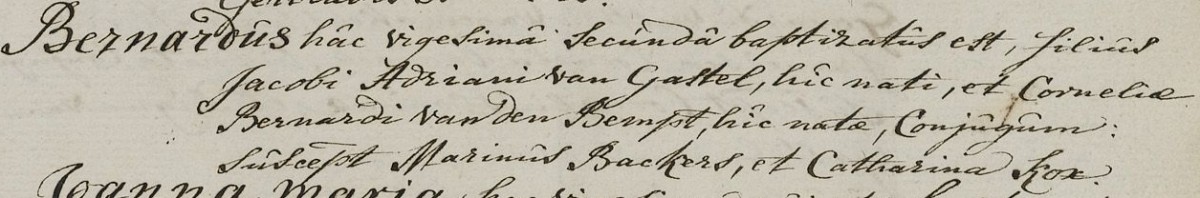 Bernardûs hâc vigesimâ secûndâ baptizatûs est, filiûs
Jacobi Adriani van Gastel, hîc nati, et Corneliæ
Bernardi van den Bempt, hîc natæ, Conjûgûm:
sûscept Marinûs Backers, et Catharina Kox.
Joanna Maria